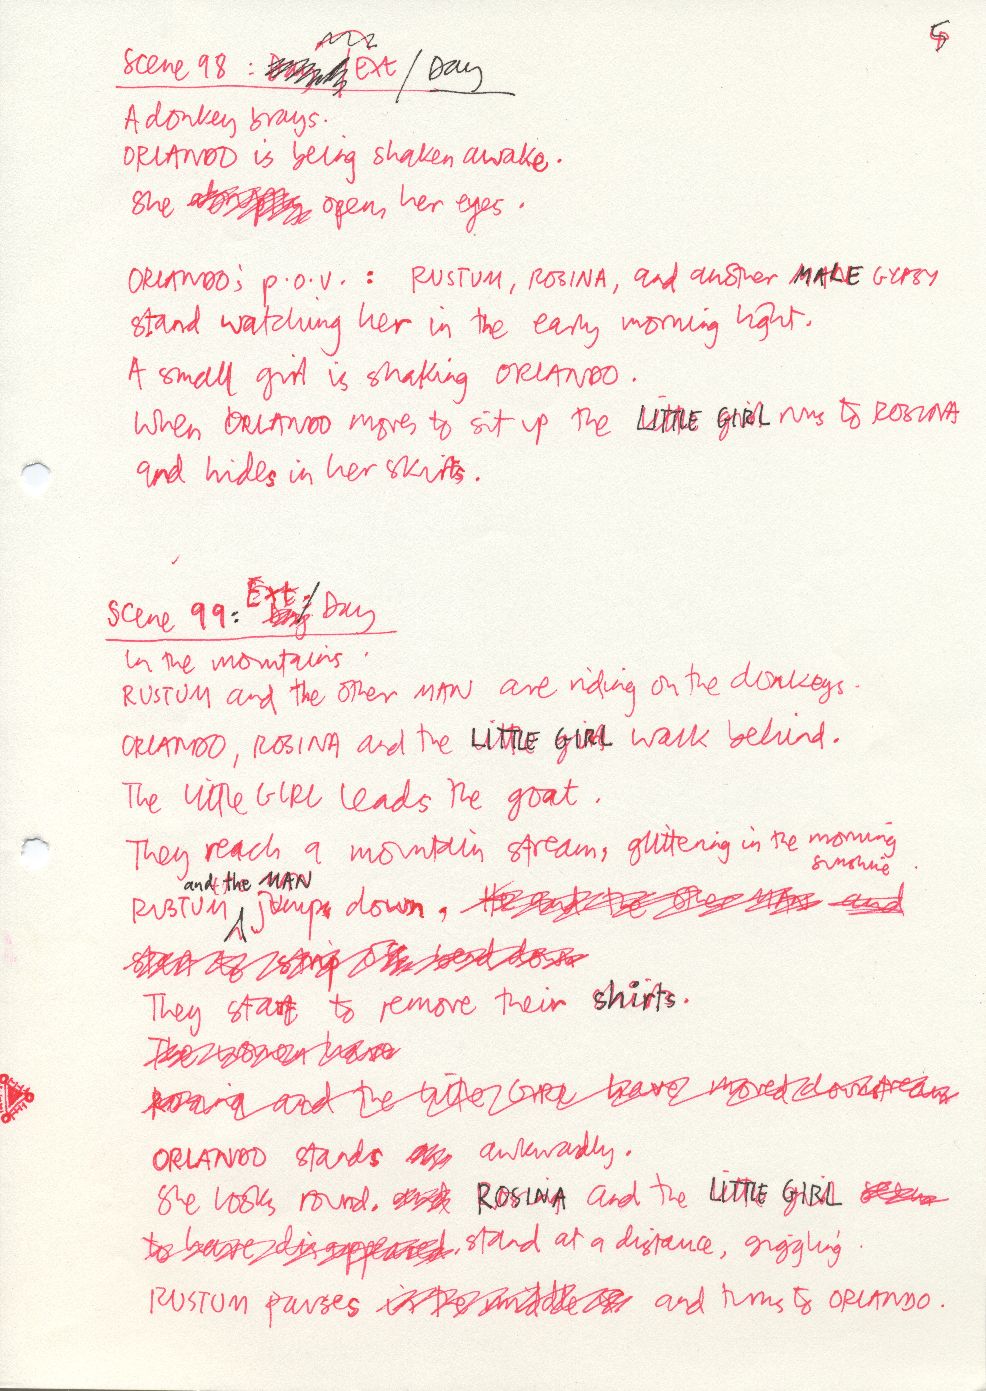 5
Scene 98 : Ext / Day
A donkey brays.
ORLANDO is being shaken awake.
She opens her eyes.
ORLANDO's p.o.v. : RUSTUM, ROSINA, and another MALE GYPSY
stand watching her in the early morning light.
A small girl is shaking ORLANDO.
When ORLANDO moves to sit up the LITTLE GIRL runs to ROSINA
and hides in her skirts.
Scene 99: Ext. / Day
In the mountains.
RUSTUM and the other MAN are riding on the donkeys.
ORLANDO, ROSINA and the LITTLE GIRL walk behind.
The little GIRL leads the goat.
They reach a mountain stream, glittering in the morning
sunshine.
and the MAN
RUSTUM jump down, He and the other MAN and
start to strip off bend down
They start to remove their shirts.
The women have
Rosina and the little GIRL have moved downstream
ORLANDO stands awkwardly.
She looks round. ROSINA and the LITTLE GIRL seem
to have disappeared. stand at a distance, giggling.
RUSTUM pauses in the middle of and turns to ORLANDO.